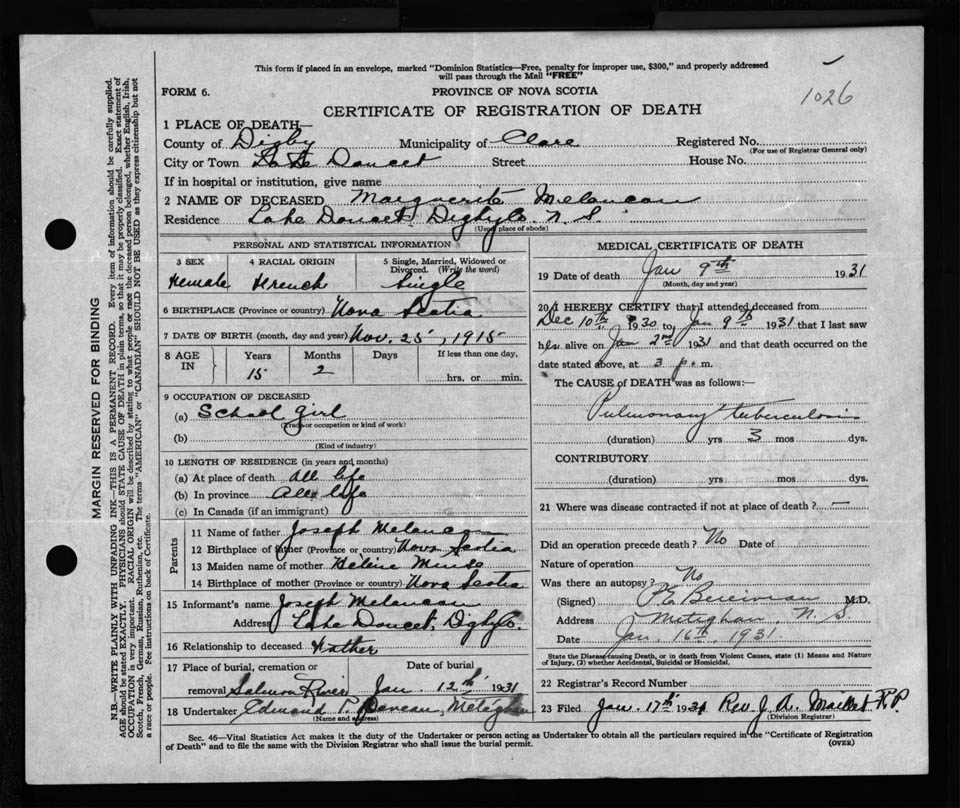 This form if placed in an envelope, marked "Dominion Statistics—Free, penalty for improper use, $300," and properly addressed
will pass through the Mail "FREE"
1026
FORM 6.
PROVINCE OF NOVA SCOTIA
CERTIFICATE OF REGISTRATION OF DEATH
1 PLACE OF DEATH—
County of Digby Municipality of Clare Registered No.
(For use of Registrar General only)
City or Town Doucet Street House No.
If in hospital or institution, give name
2 NAME OF DECEASED Marguerite Melancon
Residence Lake Doucet Digby Co. N. S.
(Usual place of abode)
PERSONAL AND STATISTICAL INFORMATION
3 SEX 4 RACIAL ORIGIN 5 Single, Married, Widowed or
Divorced. (Write the word)
Female French Single
6 BIRTHPLACE (Province or country) Nova Scotia
7 DATE OF BIRTH (month, day and year) Nov. 25, 1915
8 AGE IN Years Months Days If less than one day,
15 2 hrs. or min.
9 OCCUPATION OF DECEASED
(a) School girl
(Trade or occupation or kind of work)
(b)
(Kind of industry)
10 LENGTH OF RESIDENCE (in years and months)
(a) At place of death all life
(b) In province all life
(c) In Canada (if an immigrant)
Parents
11 Name of father Joseph Melancon
12 Birthplace of father (Province or country) Nova Scotia
13 Maiden name of mother Hélène
14 Birthplace of mother (Province or country) Nova Scotia
15 Informant's name Joseph Melancon
Address Lake Doucet, Digby Co.
16 Relationship to deceased Father
17 Place of burial, cremation or Date of burial
removal Salmon River Jan. 12th 1931
18 Undertaker Edmond T. Meteghan
(Name and address)
MEDICAL CERTIFICATE OF DEATH
19 Date of death Jan 9th 1931
(Month, day and year)
20 I HEREBY CERTIFY that I attended deceased from
Dec 10th 1930 to Jan 9th 1931 that I last saw
her alive on Jan 2nd 1931 and that death occurred on the
date stated above, at 3 p. m.
The CAUSE of DEATH was as follows:
Pulmonary tuberculosis
(duration) yrs 3 mos dys.
CONTRIBUTORY
(duration) yrs mos dys.
21 Where was disease contracted if not at place of death? —
Did an operation precede death? No Date of
Nature of operation
Was there an autopsy? No
(Signed) M.D.
Address Meteghan, N. S.
Date Jan. 16th, 1931.
State the Disease causing Death, or in death from Violent Causes, state (1) Means and Nature
of Injury, (2) whether Accidental, Suicidal or Homicidal.
22 Registrar's Record Number
23 Filed Jan. 17th 1931 Rev. J. A.
(Division Registrar)
Sec. 46—Vital Statistics Act makes it the duty of the Undertaker or person acting as Undertaker to obtain all the particulars required in the "Certificate of Registration
of Death" and to file the same with the Division Registrar who shall issue the burial permit.
(OVER)
MARGIN RESERVED FOR BINDING
N.B.—WRITE PLAINLY WITH UNFADING INK—THIS IS A PERMANENT RECORD. Every item of information should be carefully supplied.
AGE should be stated EXACTLY. PHYSICIANS should STATE CAUSE OF DEATH in plain terms, so that it may be properly classified. Exact statement of
OCCUPATION is very important. RACIAL ORIGIN will be described by stating to what people or race the deceased person belonged, whether English, Irish,
Scotch, French, German, Russian, Ruthenian, etc. The terms "AMERICAN" or "CANADIAN" SHOULD NOT BE USED as they express citizenship but not
a race or people. Fee instructions on back of Certificate.